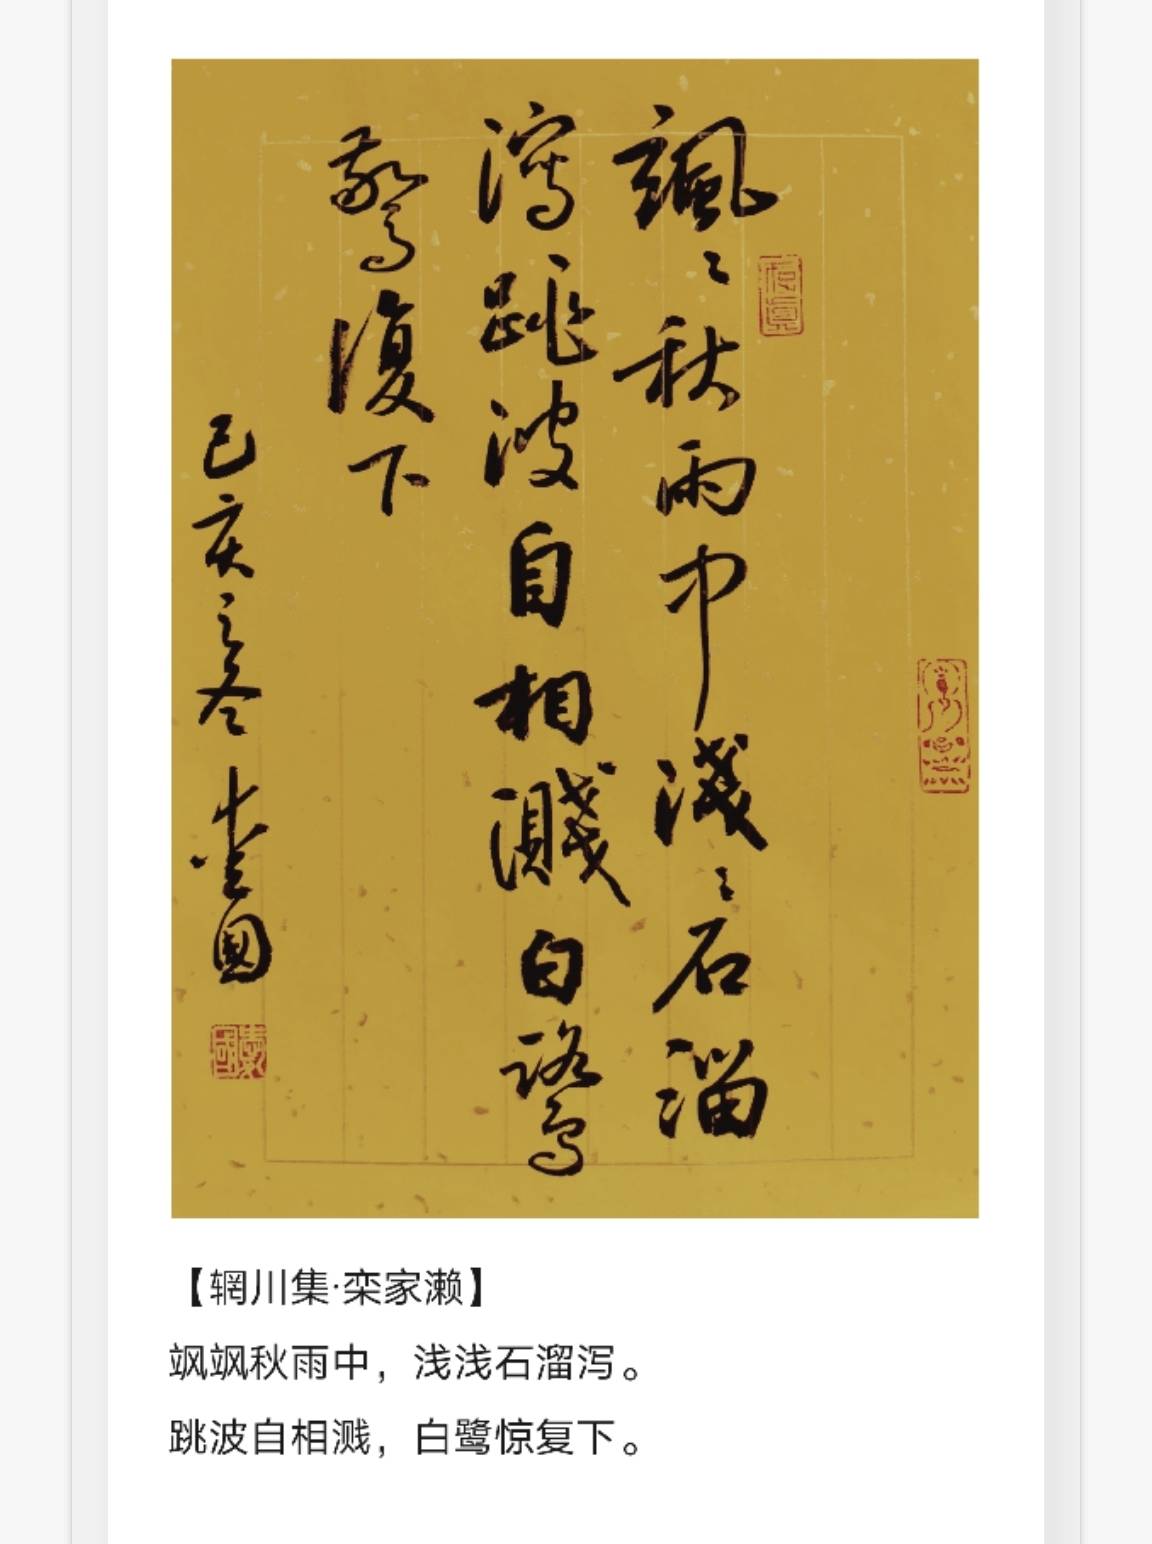 飒〻秋雨中浅〻石溜
泻跳波自相溅白鹭
惊复下
己亥之冬 爱国
【辋川集·栾家濑】
飒飒秋雨中，浅浅石溜泻。
跳波自相溅，白鹭惊复下。